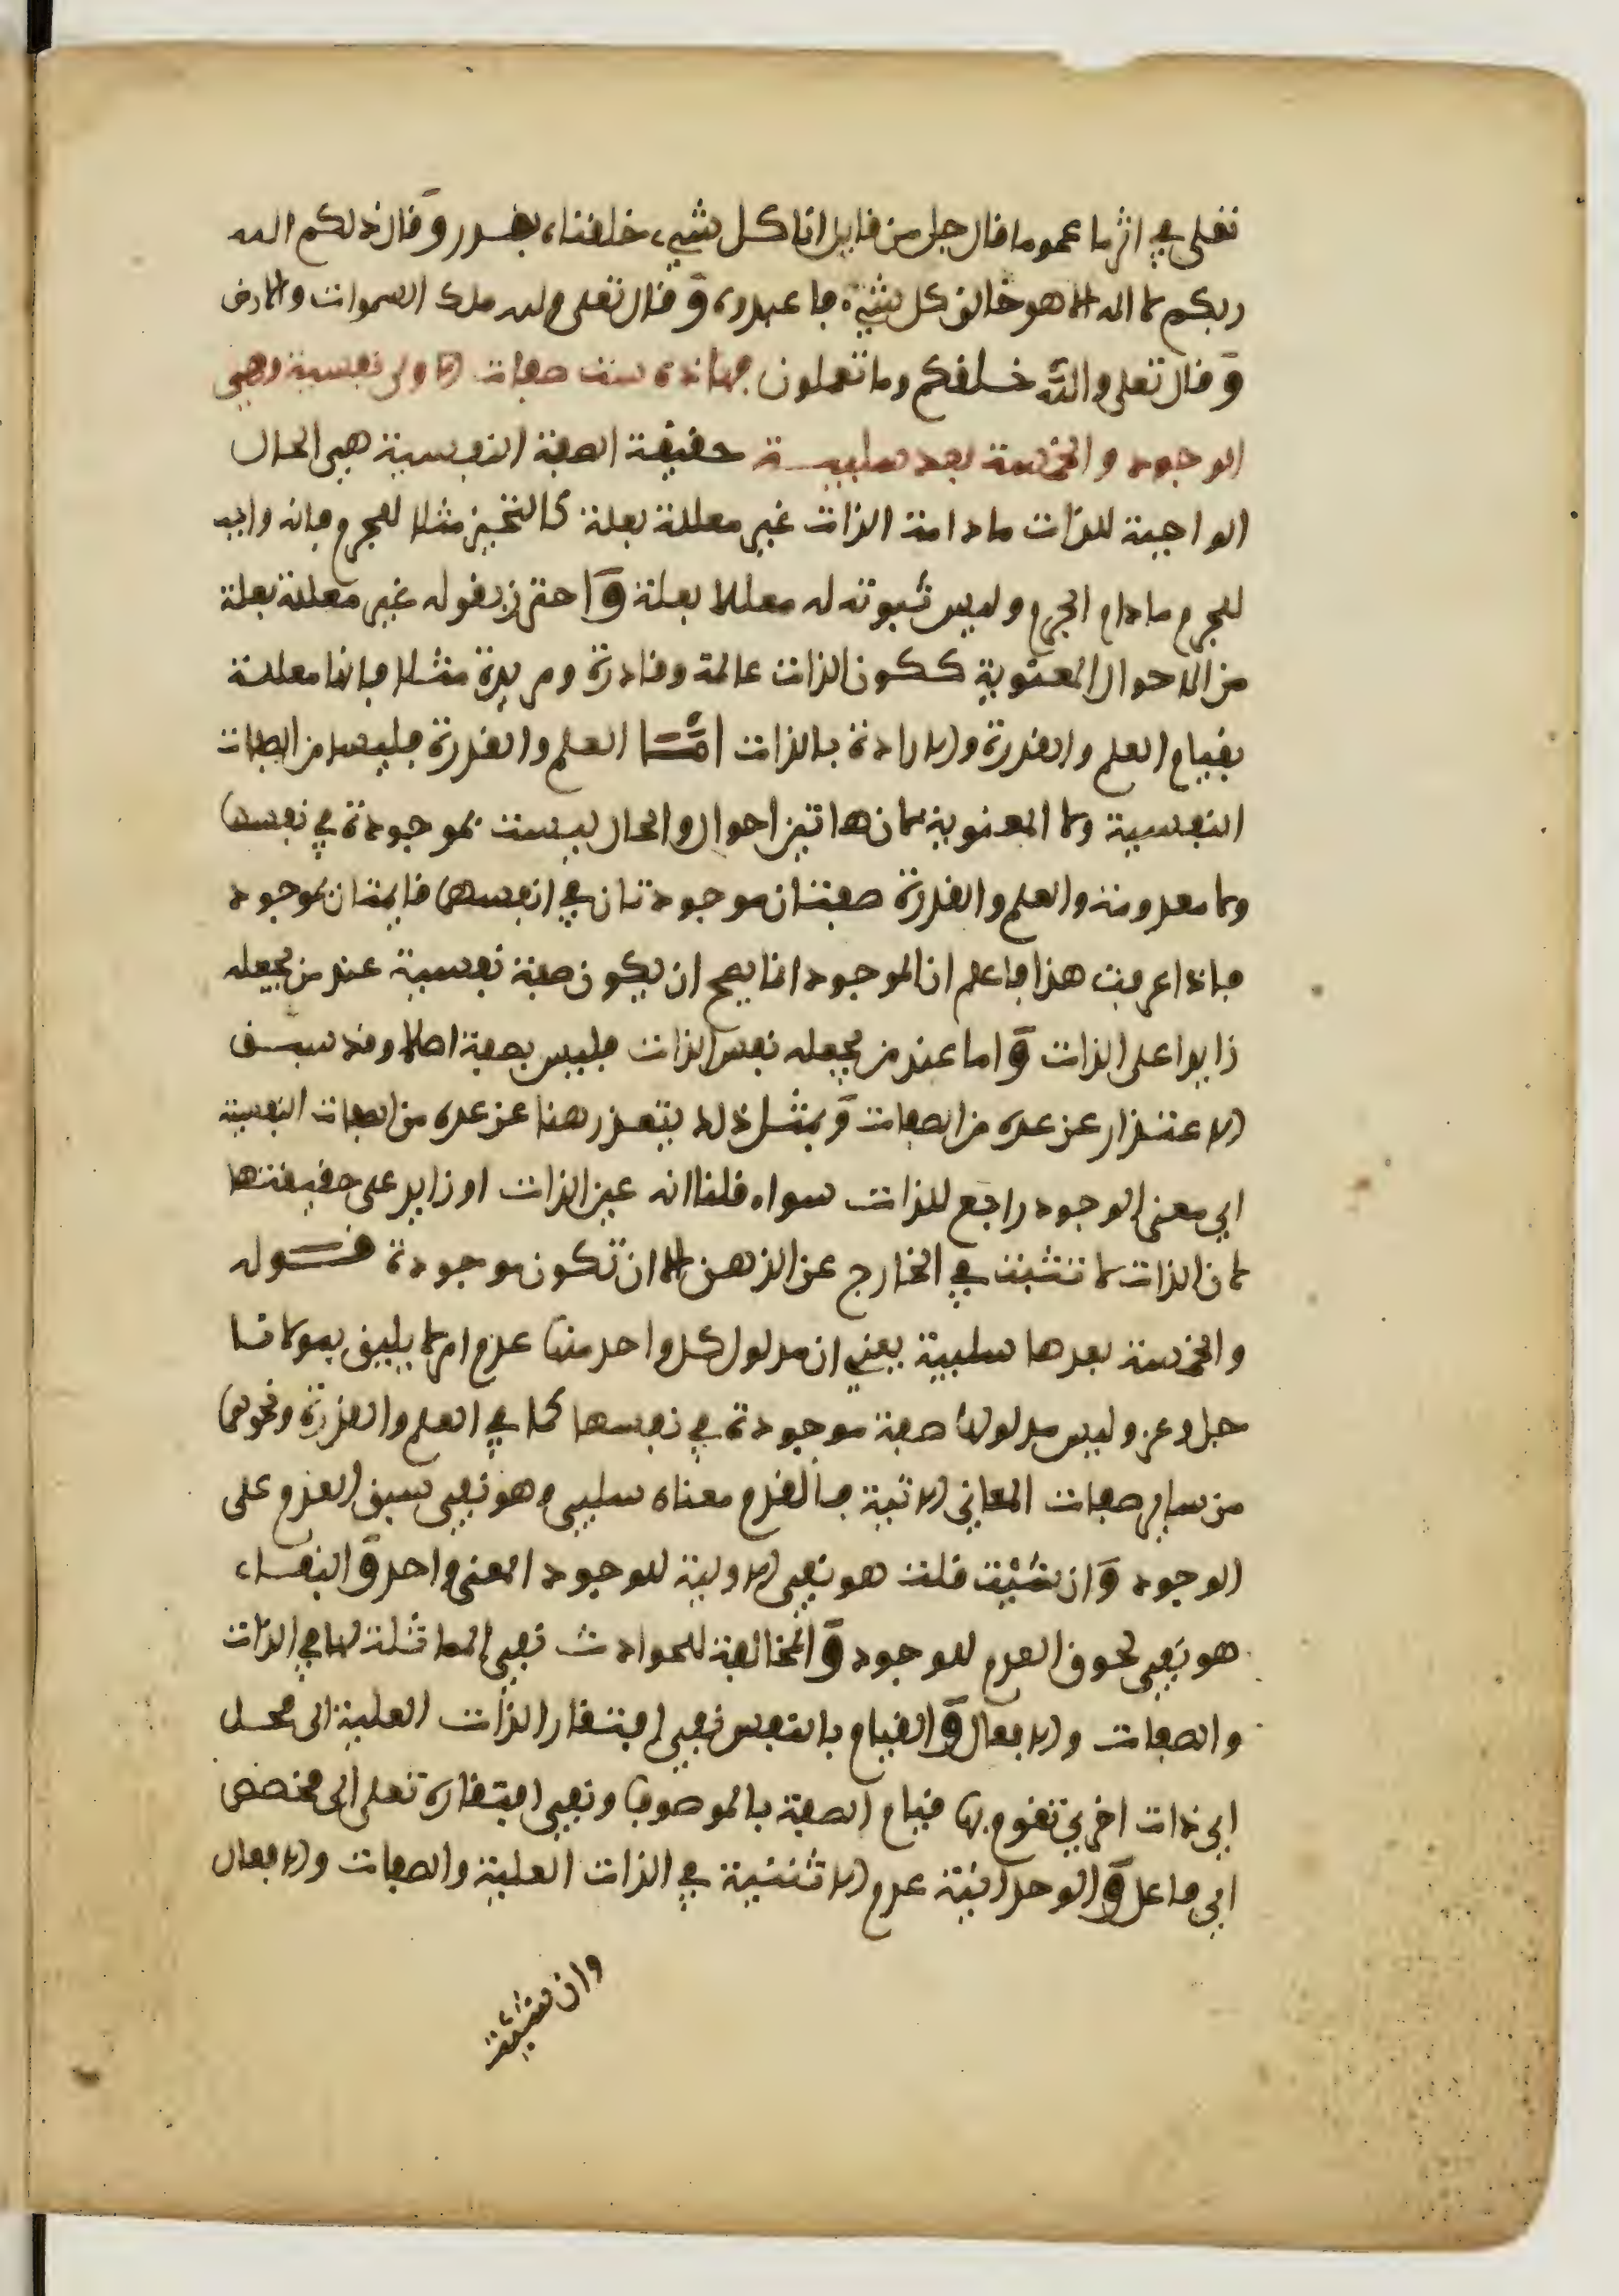 تعلى في اثرما عموما قال جل من قايل انا كل شيء خلقناه بقدر وقال ذلكم الله
ربكم لا اله الا هو خالق كل شيء فاعبدوه وقال تعلى ولله ملك السموات والارض
وقال تعلى والله خلقكم وما تعملون فهاذه ست صفات الاولى نفسية وهي
الوجود والخمسة بعد سلبيـة حقيقة الصفة النفسية هي الحال
الواجبة للذات مادامت الذات غير معللة بعلة كالتحيز مثلا للجرم فانه واجب
للجرم مادام الجرم وليس ثبوته له معللا بعلة واحترز بقوله غير معللة بعلة
من الاحوال المعنوية ككون الذات عالمة وقادرة ومريدة مثلا فانها معللة
بقيام العلم والقدرة والارادة بالذات امـا العلم والقدرة فليسا من الصفات
النفسية ولا المعنوية لان هاتين احوال والحال ليست بموجودة في نفسها
ولا معدومة والعلم والقدرة صفتان موجودتان في انفسهما قايمتان بموجود
فاذا عرفت هذا فاعلم ان الوجود انما يصح ان يكون صفة نفسية عند من يجعله
زايدا على الذات واما عند من يجعله نفس الذات فليس بصفة اصلا وقد سبق
الاعتذار عن عده من الصفات وبمثل ذلك يتعذر هنا عن عده من الصفات النفسية
اي معنى الوجود راجع للذات سواء قلنا انه عين الذات او زايد على حقيقتها
لان الذات لا تثبت في الخارج عن الذهن الا ان تكون موجودة قـوله
والخمسة بعدها سلبية يعني ان مدلول كل واحد منها عدم امر لا يليق بمولانا
جل وعز وليس مدلولها صفة موجودة في نفسها كما في العلم والقدرة ونحوهما
من ساير صفات المعاني الاتية فالقدم معناه سلبي وهو نفي سبق العدم على
الوجود وان شيت قلت هو نفي الاولية للوجود المعنى واحد والبقاء
هو نفي لحوق العدم للوجود والمخالفة للحوادث نفي المماثلة لها في الذات
والصفات والافعال والقيام بالنفس نفي افتقار الذات العلية الى محل
اي ذات اخرى تقوم بها قيام الصفة بالموصوف ونفي افتقاره تعلى الى مخصص
اي فاعل والوحدانية عدم الاثنينية في الذات العلية والصفات والافعال
وان شيت